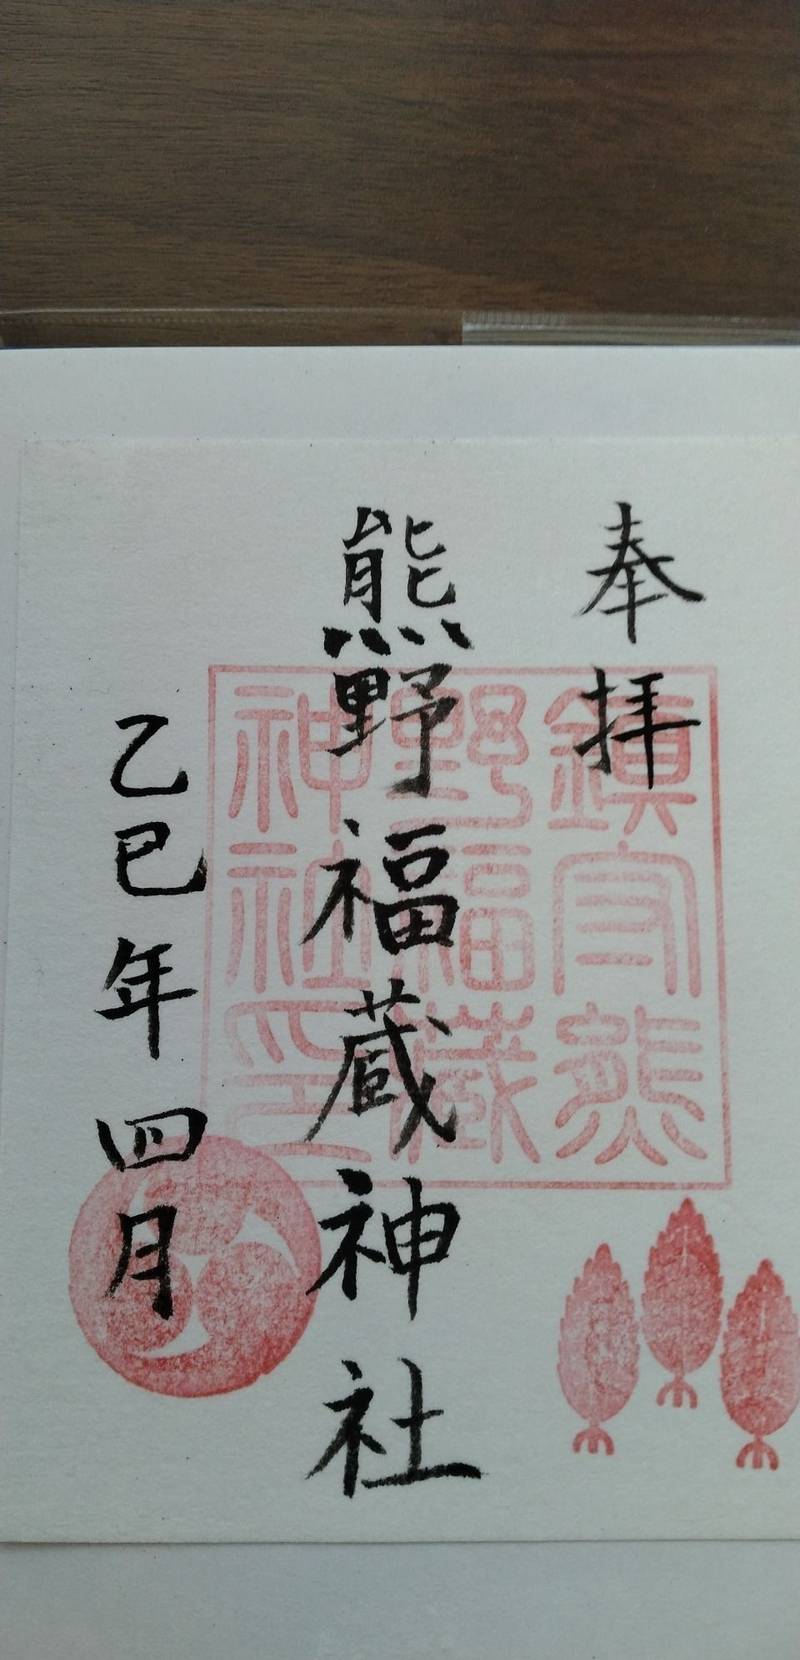 奉拝
熊野福蔵神社
乙巳年四月
鎮守熊
野福蔵
神社印